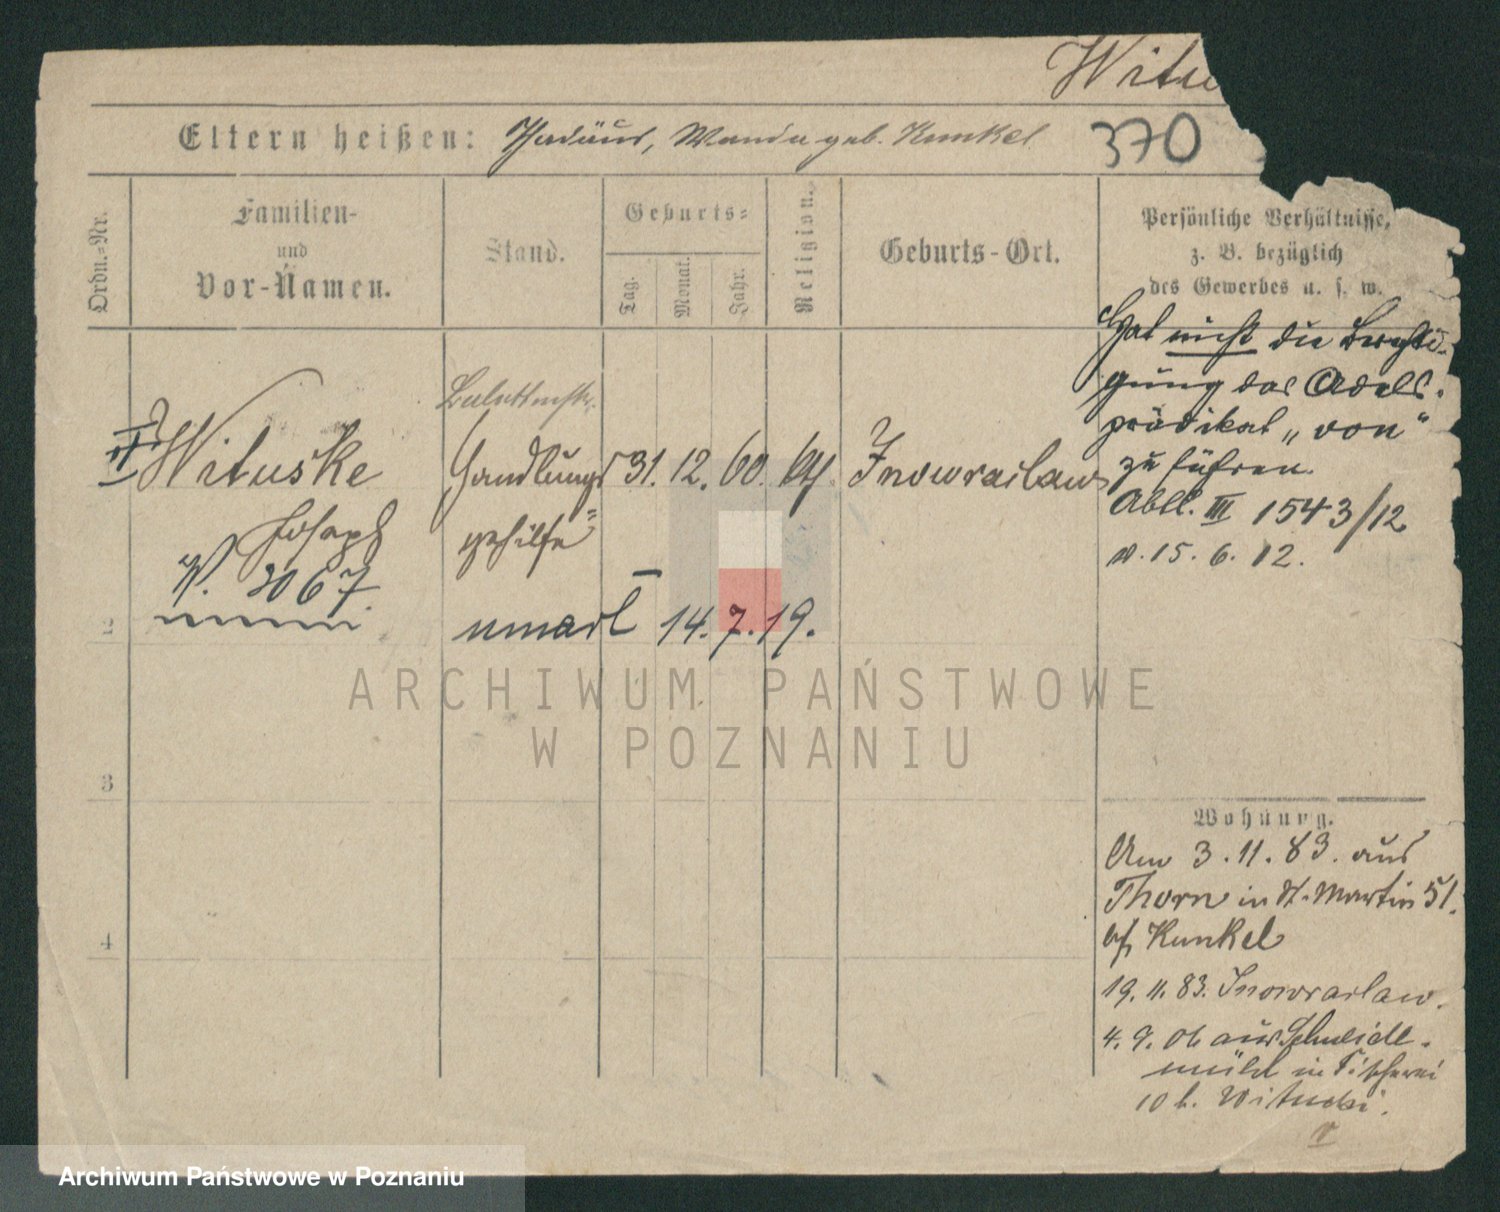 Witu
Eltern heißen: Thadäus, Wanda geb. Kunkel
370
Ordn.-Nr.
Familien-
und
Vor-Namen.
Stand.
Geburts-
Tag.
Monat.
Jahr.
Religion.
Geburts-Ort.
Persönliche Verhältnisse,
z. B. bezüglich
des Gewerbes u. s. w.
Hat nicht die Berechti-
gung das Adels-
prädikat „von“
zu führen.
Abtl. III 1543/12
v. 15. 6. 12.
II Wituske
Joseph
W. 3067.
Handlungs
gehilfe
31. 12. 60. kth. Inowraclaw
14. 7. 19.
2
3
4
ARCHIWUM PAŃSTWOWE
W POZNANIU
Wohnung.
Am 3. 11. 83. aus
Thorn in St. Martin 51.
bei Kunkel
19. 11. 83. Inowraclaw.
4. 9. 06 aus Schneide-
mühl in Fischerei
10 b. Witucki.
Archiwum Państwowe w Poznaniu